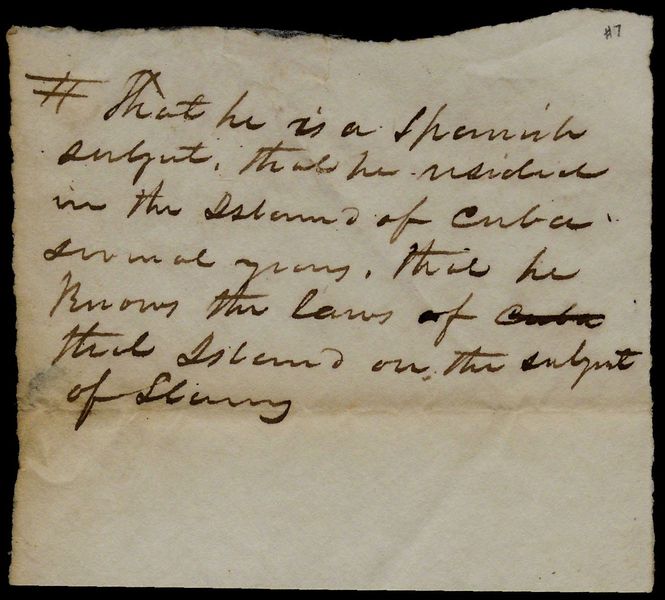 #7
# That he is a Spanish
subject, that he resided
in the Island of Cuba
several years, that he
Knows the laws of Cuba
that Island on the subject
of Slavery